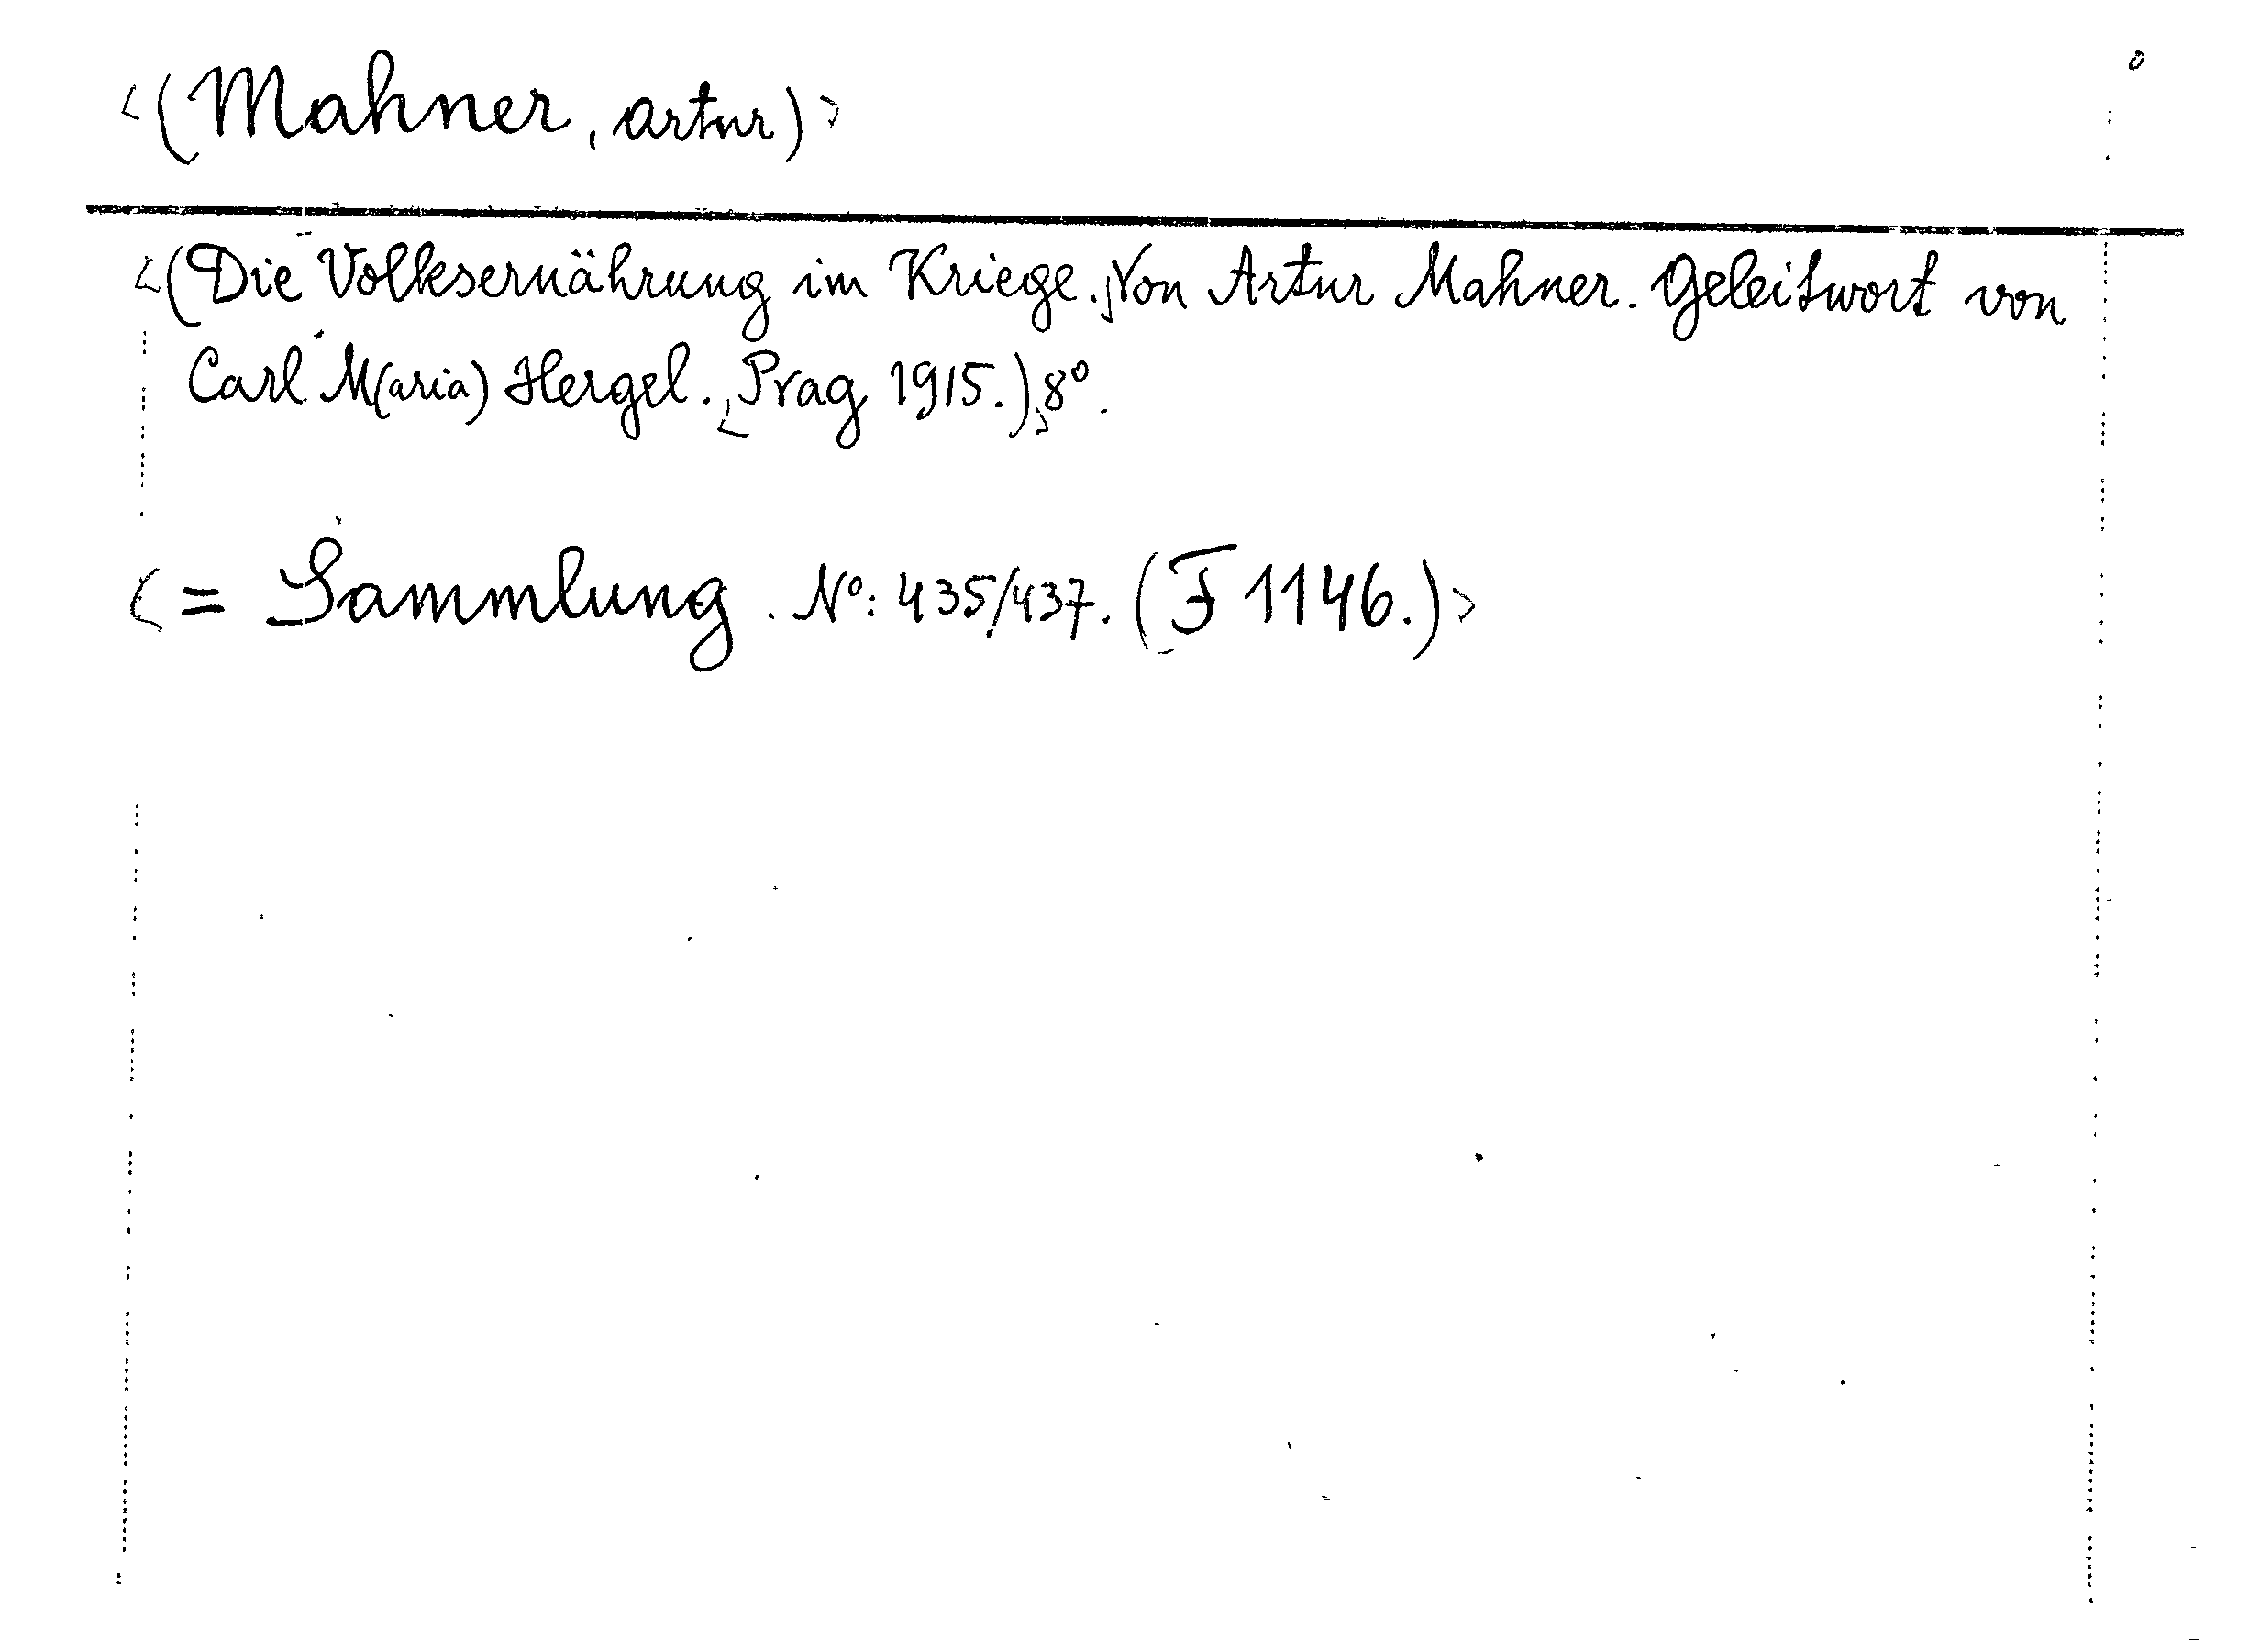 <(Mahner, Artur)>
<(Die Volksernährung im Kriege.> Von Artur Mahner. Geleitwort von
Carl M(aria) Hergel. <Prag 1915.)> 8°.
<= Sammlung. N°: 435/437. (F 1146.)>